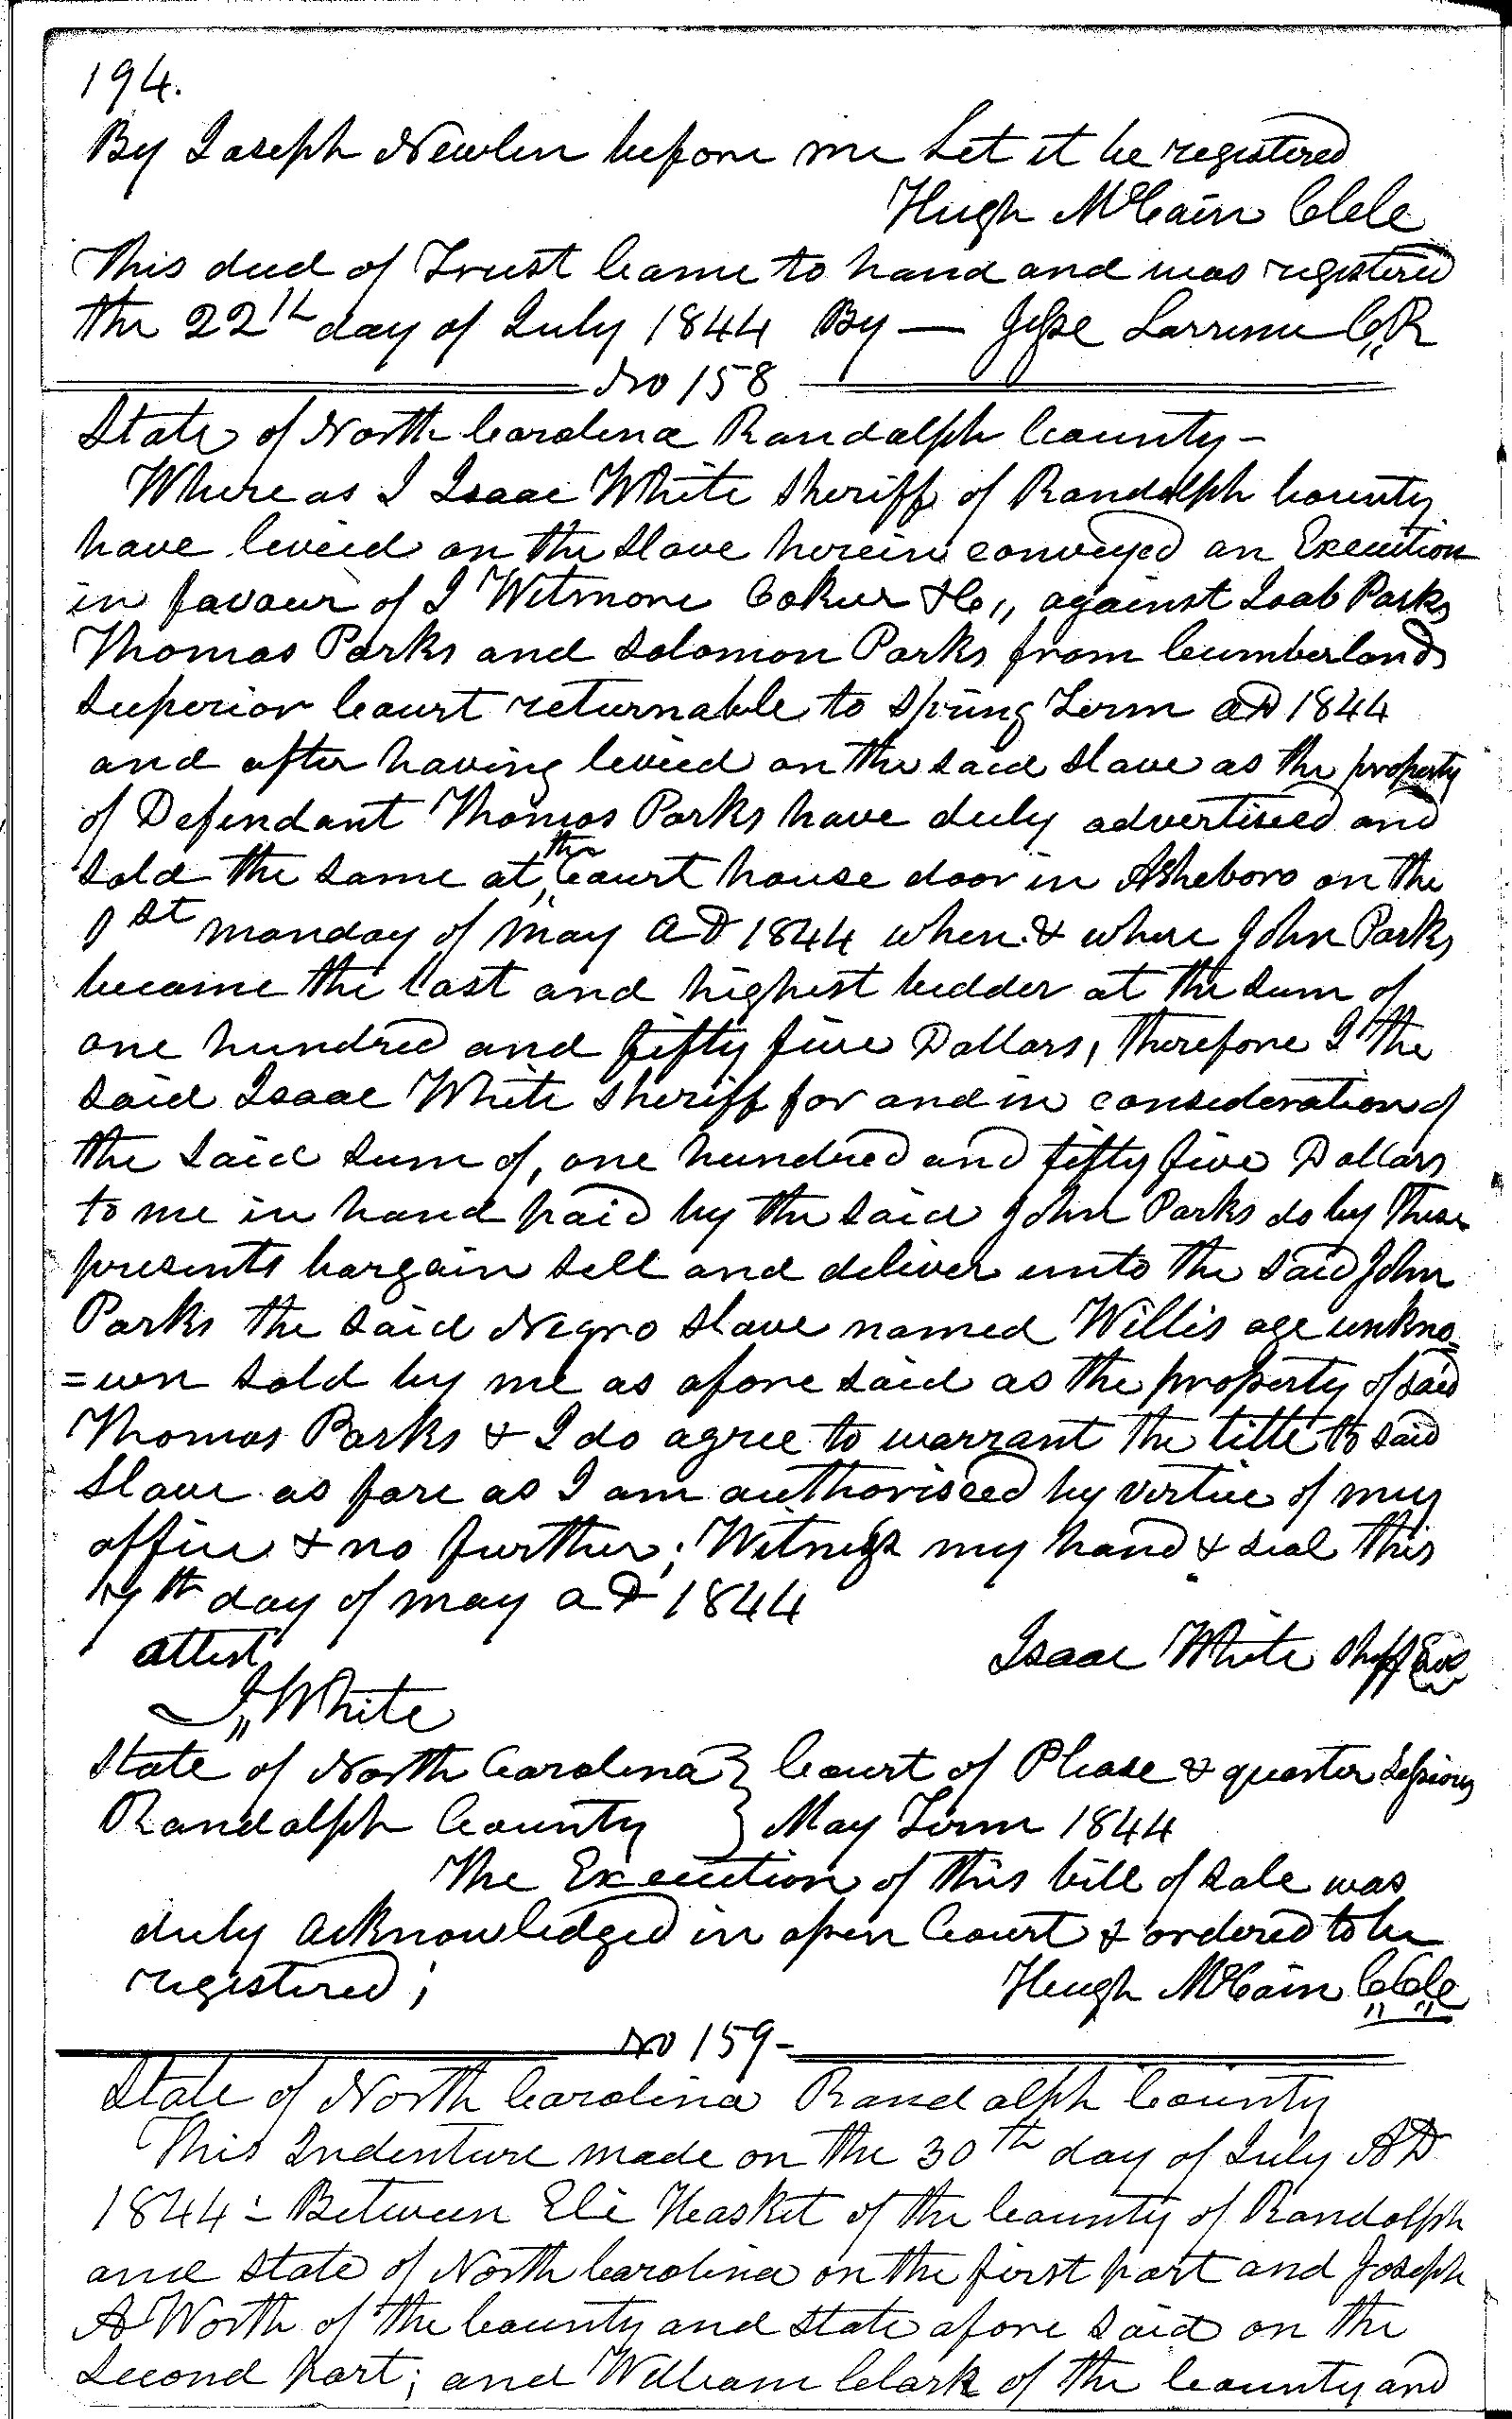 194.
By Joseph Newlin before me Let it be registered
Hugh McCain Clk
This deed of Trust Came to hand and was registered
the 22th day of July 1844 By — Jesse Larrimu C,,R
No 158
State of North Carolina Randolph County -
Whereas I Isaac White Sheriff of Randolph County
have levied on the slave herein conveyed an Execution
in favour of J Witmore & Co,, against Joab Parks
Thomas Parks and Solomon Parks from Cumberland
Superior Court returnable to Spring Term AD 1844
and after having levied on the said slave as the property
of Defendant Thomas Parks have duly advertised and
sold the same at the Court house door in Asheboro on the
1st monday of may AD 1844 when & where John Parks
became the last and highest bidder at the sum of
one hundred and fifty five Dollars, therefore I the
said Isaac White Sheriff for and in consideration of
the said sum of, one hundred and fifty five Dollars
to me in hand paid by the said John Parks do by these
presents bargain sell and deliver unto the said John
Parks the said Negro slave named Willis age unkno
=wn sold by me as afore said as the property of said
Thomas Parks & I do agree to warrant the title to said
Slave as fare as I am authorised by virtue of my
office & no further; Witness my hand & seal this
day of may AD 1844
attest
Isaac White Shff
J,, White
State of North Carolina } Court of Please & quarter Sessions
Randolph County } May Term 1844
The Execution of this bill of sale was
duly acknowledged in open Court & ordered to be
registered;
Hugh McCain CClk
No 159-
State of North Carolina Randolph County
This Indenture made on the 30th day of July AD
1844 :- Between Eli Hasket of the County of Randolph
and State of North Carolina on the first part and Joseph
A Worth of the County and State afore said on the
Second part; and William Clark of the County and